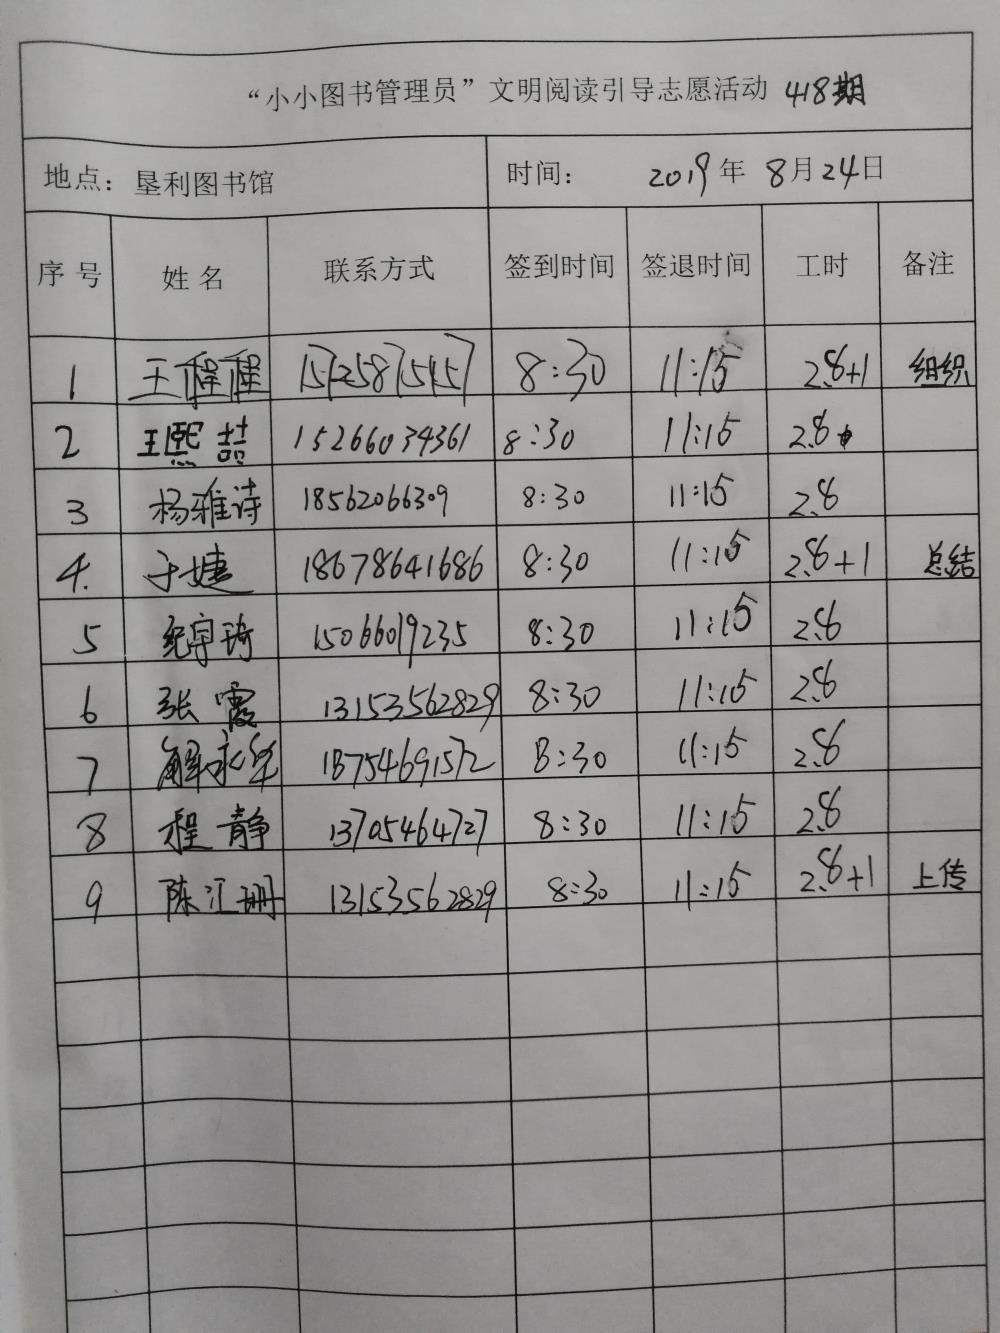 “小小图书管理员”文明阅读引导志愿活动 418期
地点：垦利图书馆 时间： 2019年 8月24日
序号 姓名 联系方式 签到时间 签退时间 工时 备注
1 王程程 15725875457 8:30 11:15 2.8+1 组织
2 王熙喆 15266034361 8:30 11:15 2.8
3 杨雅诗 18562066309 8:30 11:15 2.8
4. 于婕 18678641686 8:30 11:15 2.8+1 总结
5 纪宇琦 15066019235 8:30 11:15 2.8
6 张霞 13153562829 8:30 11:15 2.8
7 解永华 18754691572 8:30 11:15 2.8
8 程静 13705464727 8:30 11:15 2.8
9 陈汇珊 13153562829 8:30 11:15 2.8+1 上传